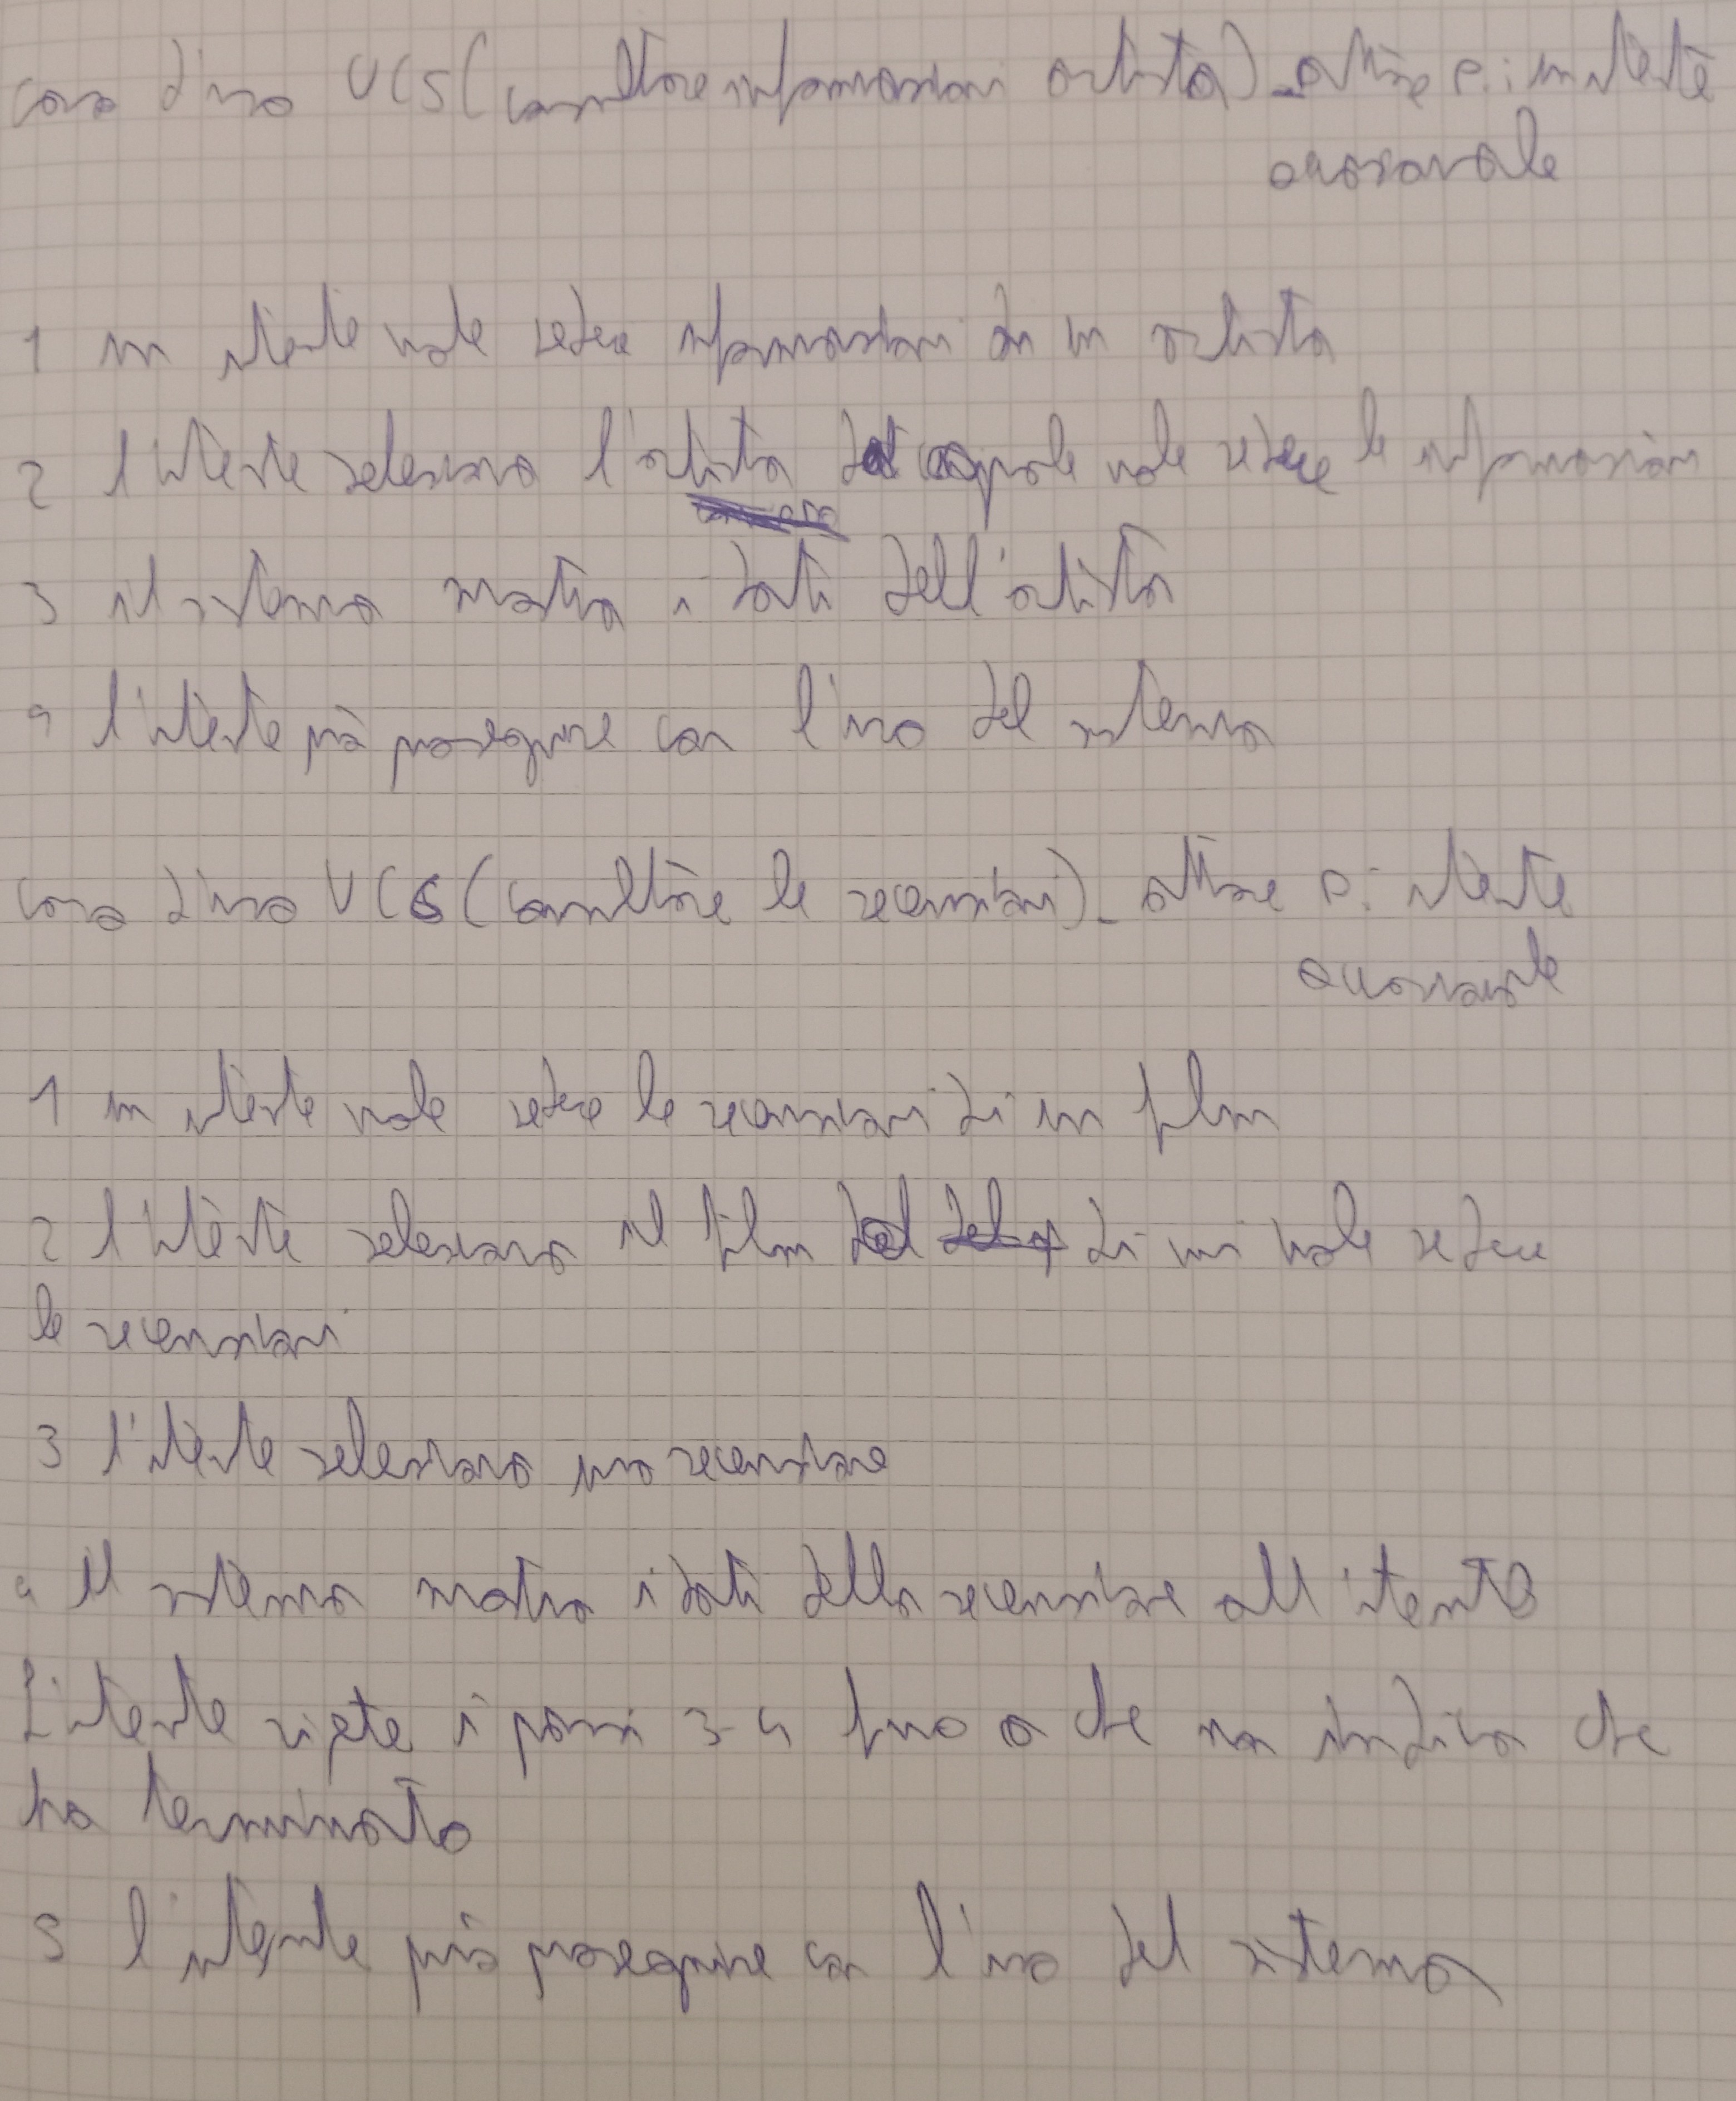 caso d'uso UC5 (consultare informazioni artista) - attore P.: un utente
occasionale
1 un utente vuole vedere informazioni di un artista
2 l'utente seleziona l'artista del quale vuole vedere le informazioni
3 il sistema mostra i dati dell'artista
4 l'utente può proseguire con l'uso del sistema
caso d'uso UC6 (consultare le recensioni) - attore P: utente
occasionale
1 un utente vuole vedere le recensioni di un film
2 l'utente seleziona il film di cui vuole vedere
le recensioni
3 l'utente seleziona una recensione
4 il sistema mostra i dati della recensione all'utente
L'utente ripete i passi 3-4 fino a che non indica che
ha terminato
5 l'utente può proseguire con l'uso del sistema